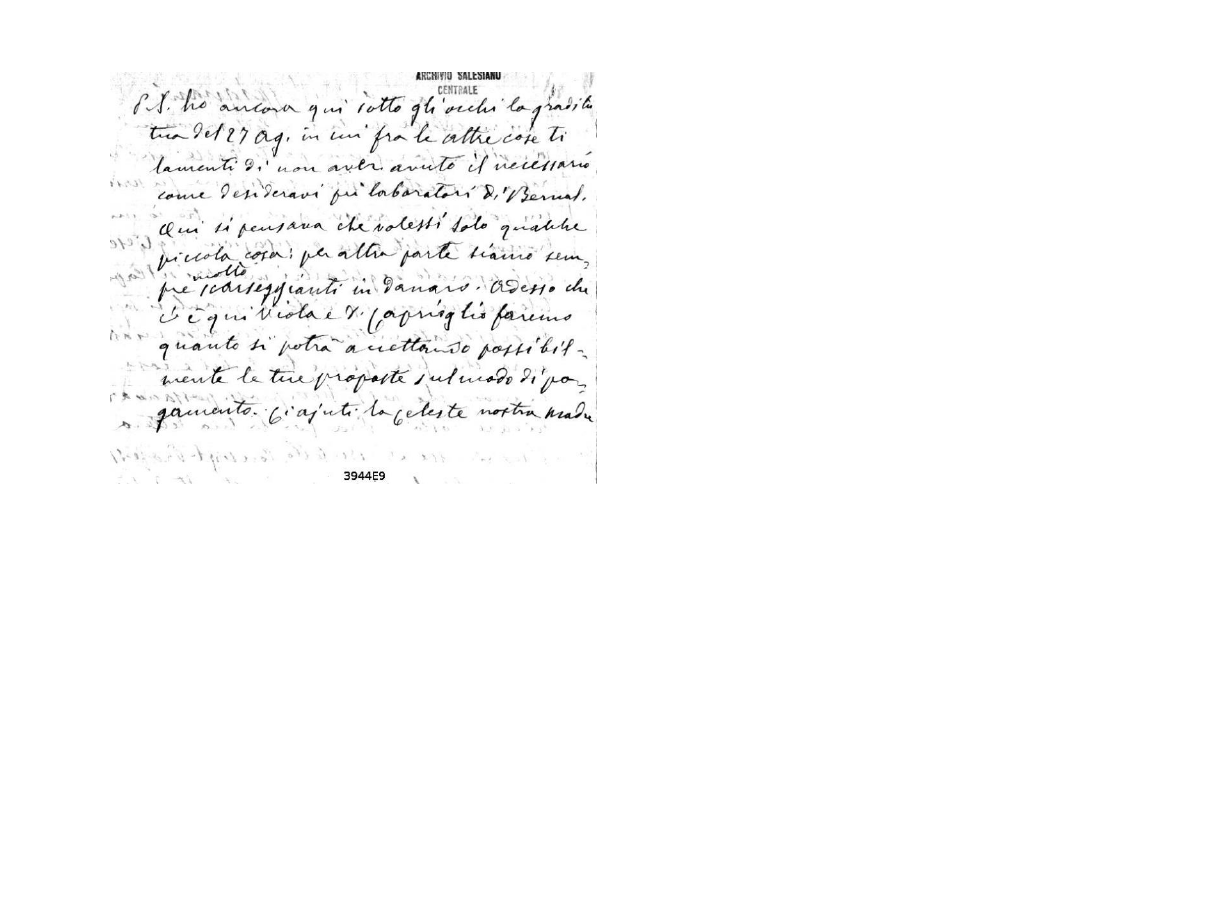 ARCHIVIO SALESIANO
CENTRALE
P.S. ho ancora qui sotto gli occhi la gradita
tua del 27 Ag. in cui fra le altre cose ti
lamenti di non aver avuto il necessario
come desideravi pei laboratori di Bernal.
Qui si pensava che volessi solo qualche
piccola cosa: per altra parte siamo sem-
molto
pre scarseggianti in danaro. Adesso che
c'è qui Viola e D. Caprioglio faremo
quanto si potrà accettando possibil-
mente le tue proposte sul modo di pa-
gamento. Ci ajuti la Celeste nostra Madre
3944E9